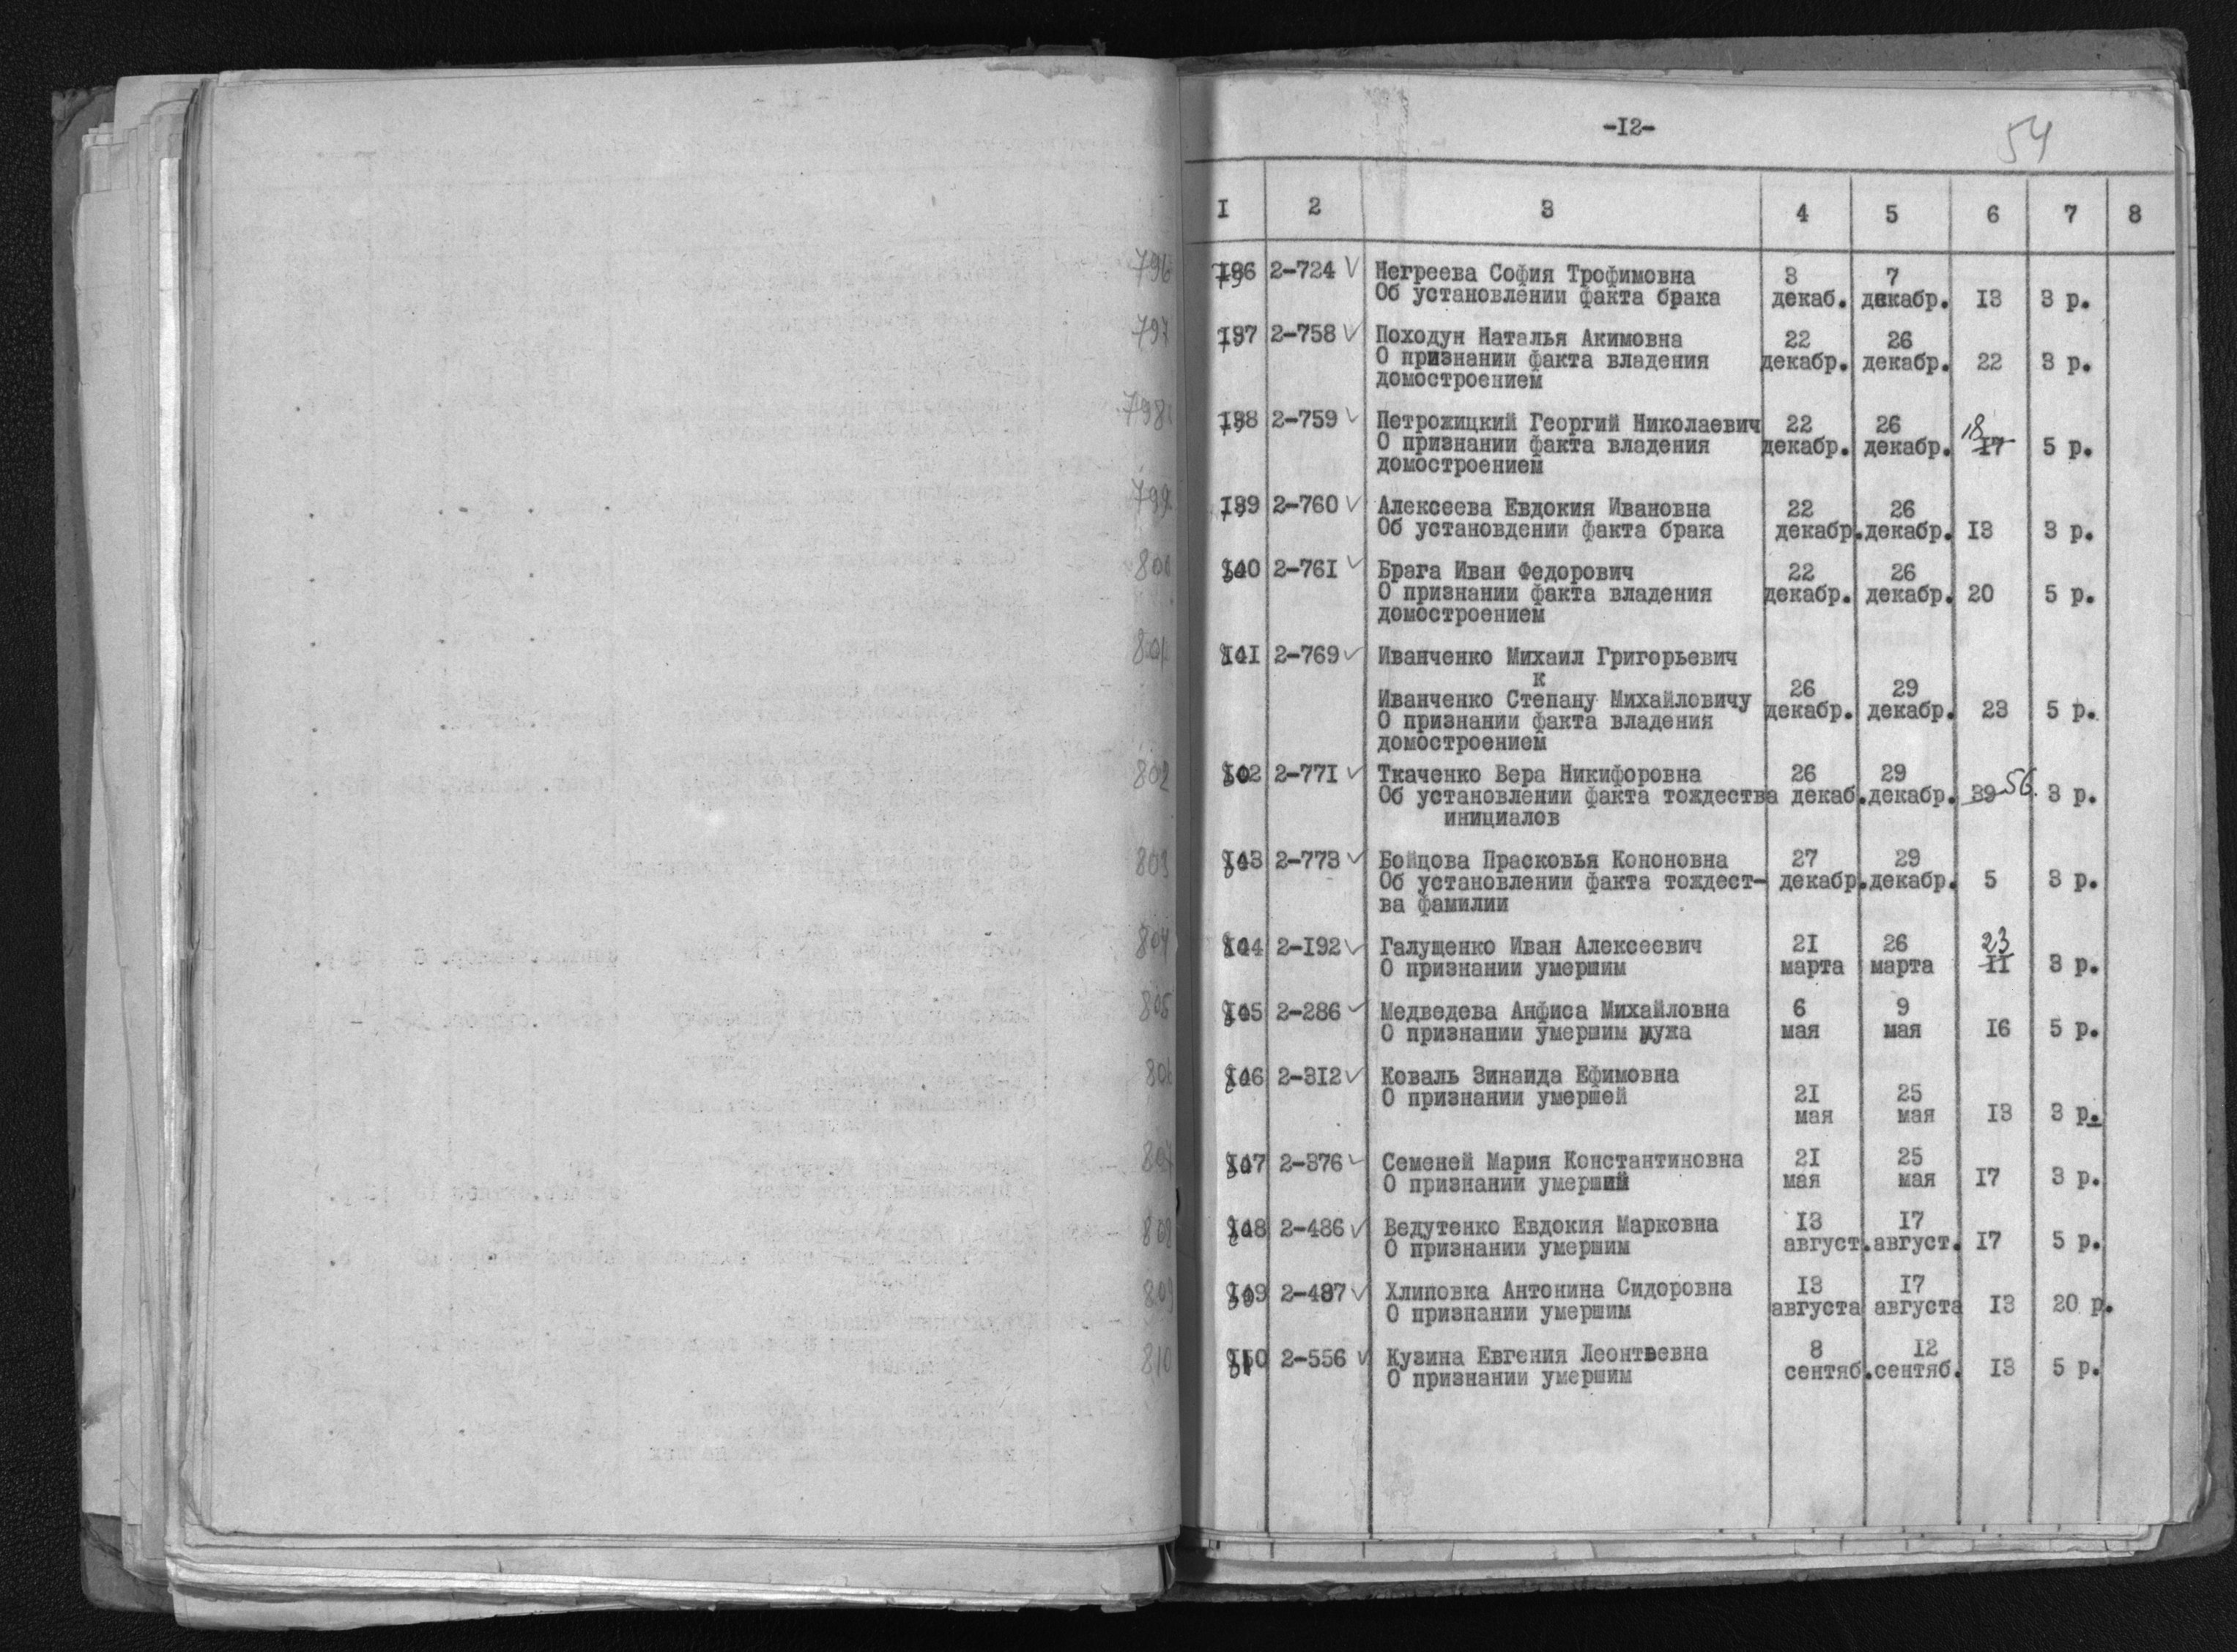 -12-
54
I 2 3 4 5 6 7 8
796 136 2-724 Негреева София Трофимовна 3 7
Об установлении факта брака декаб. декабр. 13 3 р.
797 137 2-758 Походун Наталья Акимовна 22 26
О признании факта владения декабр. декабр. 22 3 р.
домостроением
798 138 2-759 Петрожицкий Георгий Николаевич 22 26 18
О признании факта владения декабр. декабр. 17 5 р.
домостроением
799 139 2-760 Алексеева Евдокия Ивановна 22 26
Об установдении факта брака декабр. декабр. 13 3 р.
800 140 2-761 Брага Иван Федорович 22 26
О признании факта владения декабр. декабр. 20 5 р.
домостроением
801 141 2-769 Иванченко Михаил Григорьевич
к
Иванченко Степану Михайловичу 26 29
О признании факта владения декабр. декабр. 23 5 р.
домостроением
802 142 2-771 Ткаченко Вера Никифоровна 26 29
Об установлении факта тождества декаб. декабр. 39 56 3 р.
инициалов
803 143 2-773 Бойцова Прасковья Кононовна 27 29
Об установлении факта тождест- декабр. декабр. 5 3 р.
ва фамилии
804 144 2-192 Галущенко Иван Алексеевич 21 26 23
О признании умершим марта марта 11 3 р.
805 145 2-286 Медведева Анфиса Михайловна 6 9
О признании умершим мужа мая мая 16 5 р.
806 146 2-312 Коваль Зинаида Ефимовна
О признании умершей 21 25
мая мая 13 3 р.
807 147 2-376 Семеней Мария Константиновна 21 25
О признании умерший мая мая 17 3 р.
808 148 2-486 Ведутенко Евдокия Марковна 13 17
О признании умершим август. август. 17 5 р.
809 149 2-487 Хлиповка Антонина Сидоровна 13 17
О признании умершим августа августа 13 20 р.
810 150 2-556 Кузина Евгения Леонтьевна 8 12
О признании умершим сентяб. сентяб. 13 5 р.